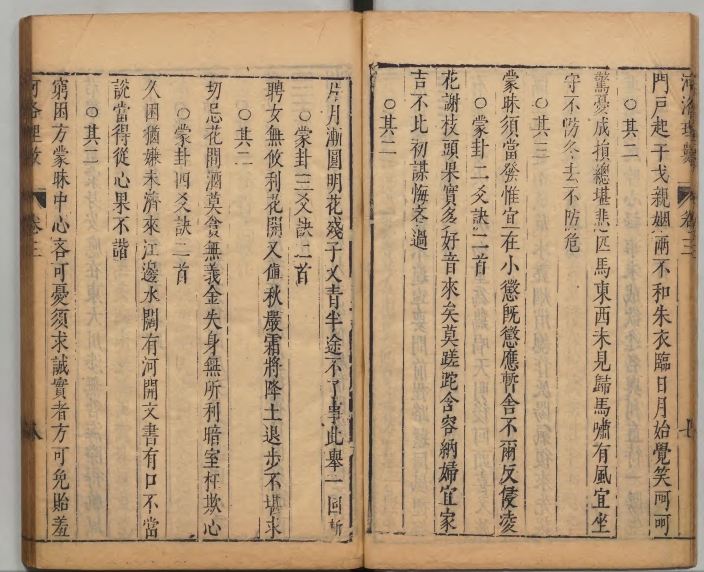 河洛理數 卷三 七
門戶起干戈親姻兩不和朱衣臨日月始覺笑呵呵
○其二
驚憂成損總堪悲匹馬東西未見歸馬嘯有風宜坐
守不防冬去不防危
○其三
蒙昧須當發惟宜在小懲既懲應暫舍不爾反侵凌
○蒙卦二爻訣二首
花謝枝頭果實多好音來矣莫蹉跎含容納婦宜家
吉不比初謀悔吝過
○其二
片月漸圓明花殘子又青半途不了事此舉一回新
○蒙卦三爻訣二首
聘女無攸利花開又値秋嚴霜將降土退步不堪求
○其二
切忌花間酒莫貪無義金失身無所利暗室枉欺心
○蒙卦四爻訣二首
久困猶嫌未濟來江邊水闊有河開文書有口不當
說當得從心果不諧
○其二
窮困方蒙昧中心吝可憂須求誠實者方可免貽羞
河洛理數 卷三 八